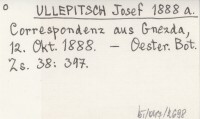 o ULLEPITSCH Josef 1888 a.
Correspondenz aus Gnezda,
12. Okt. 1888. — Oester. Bot.
Zs. 38: 397.